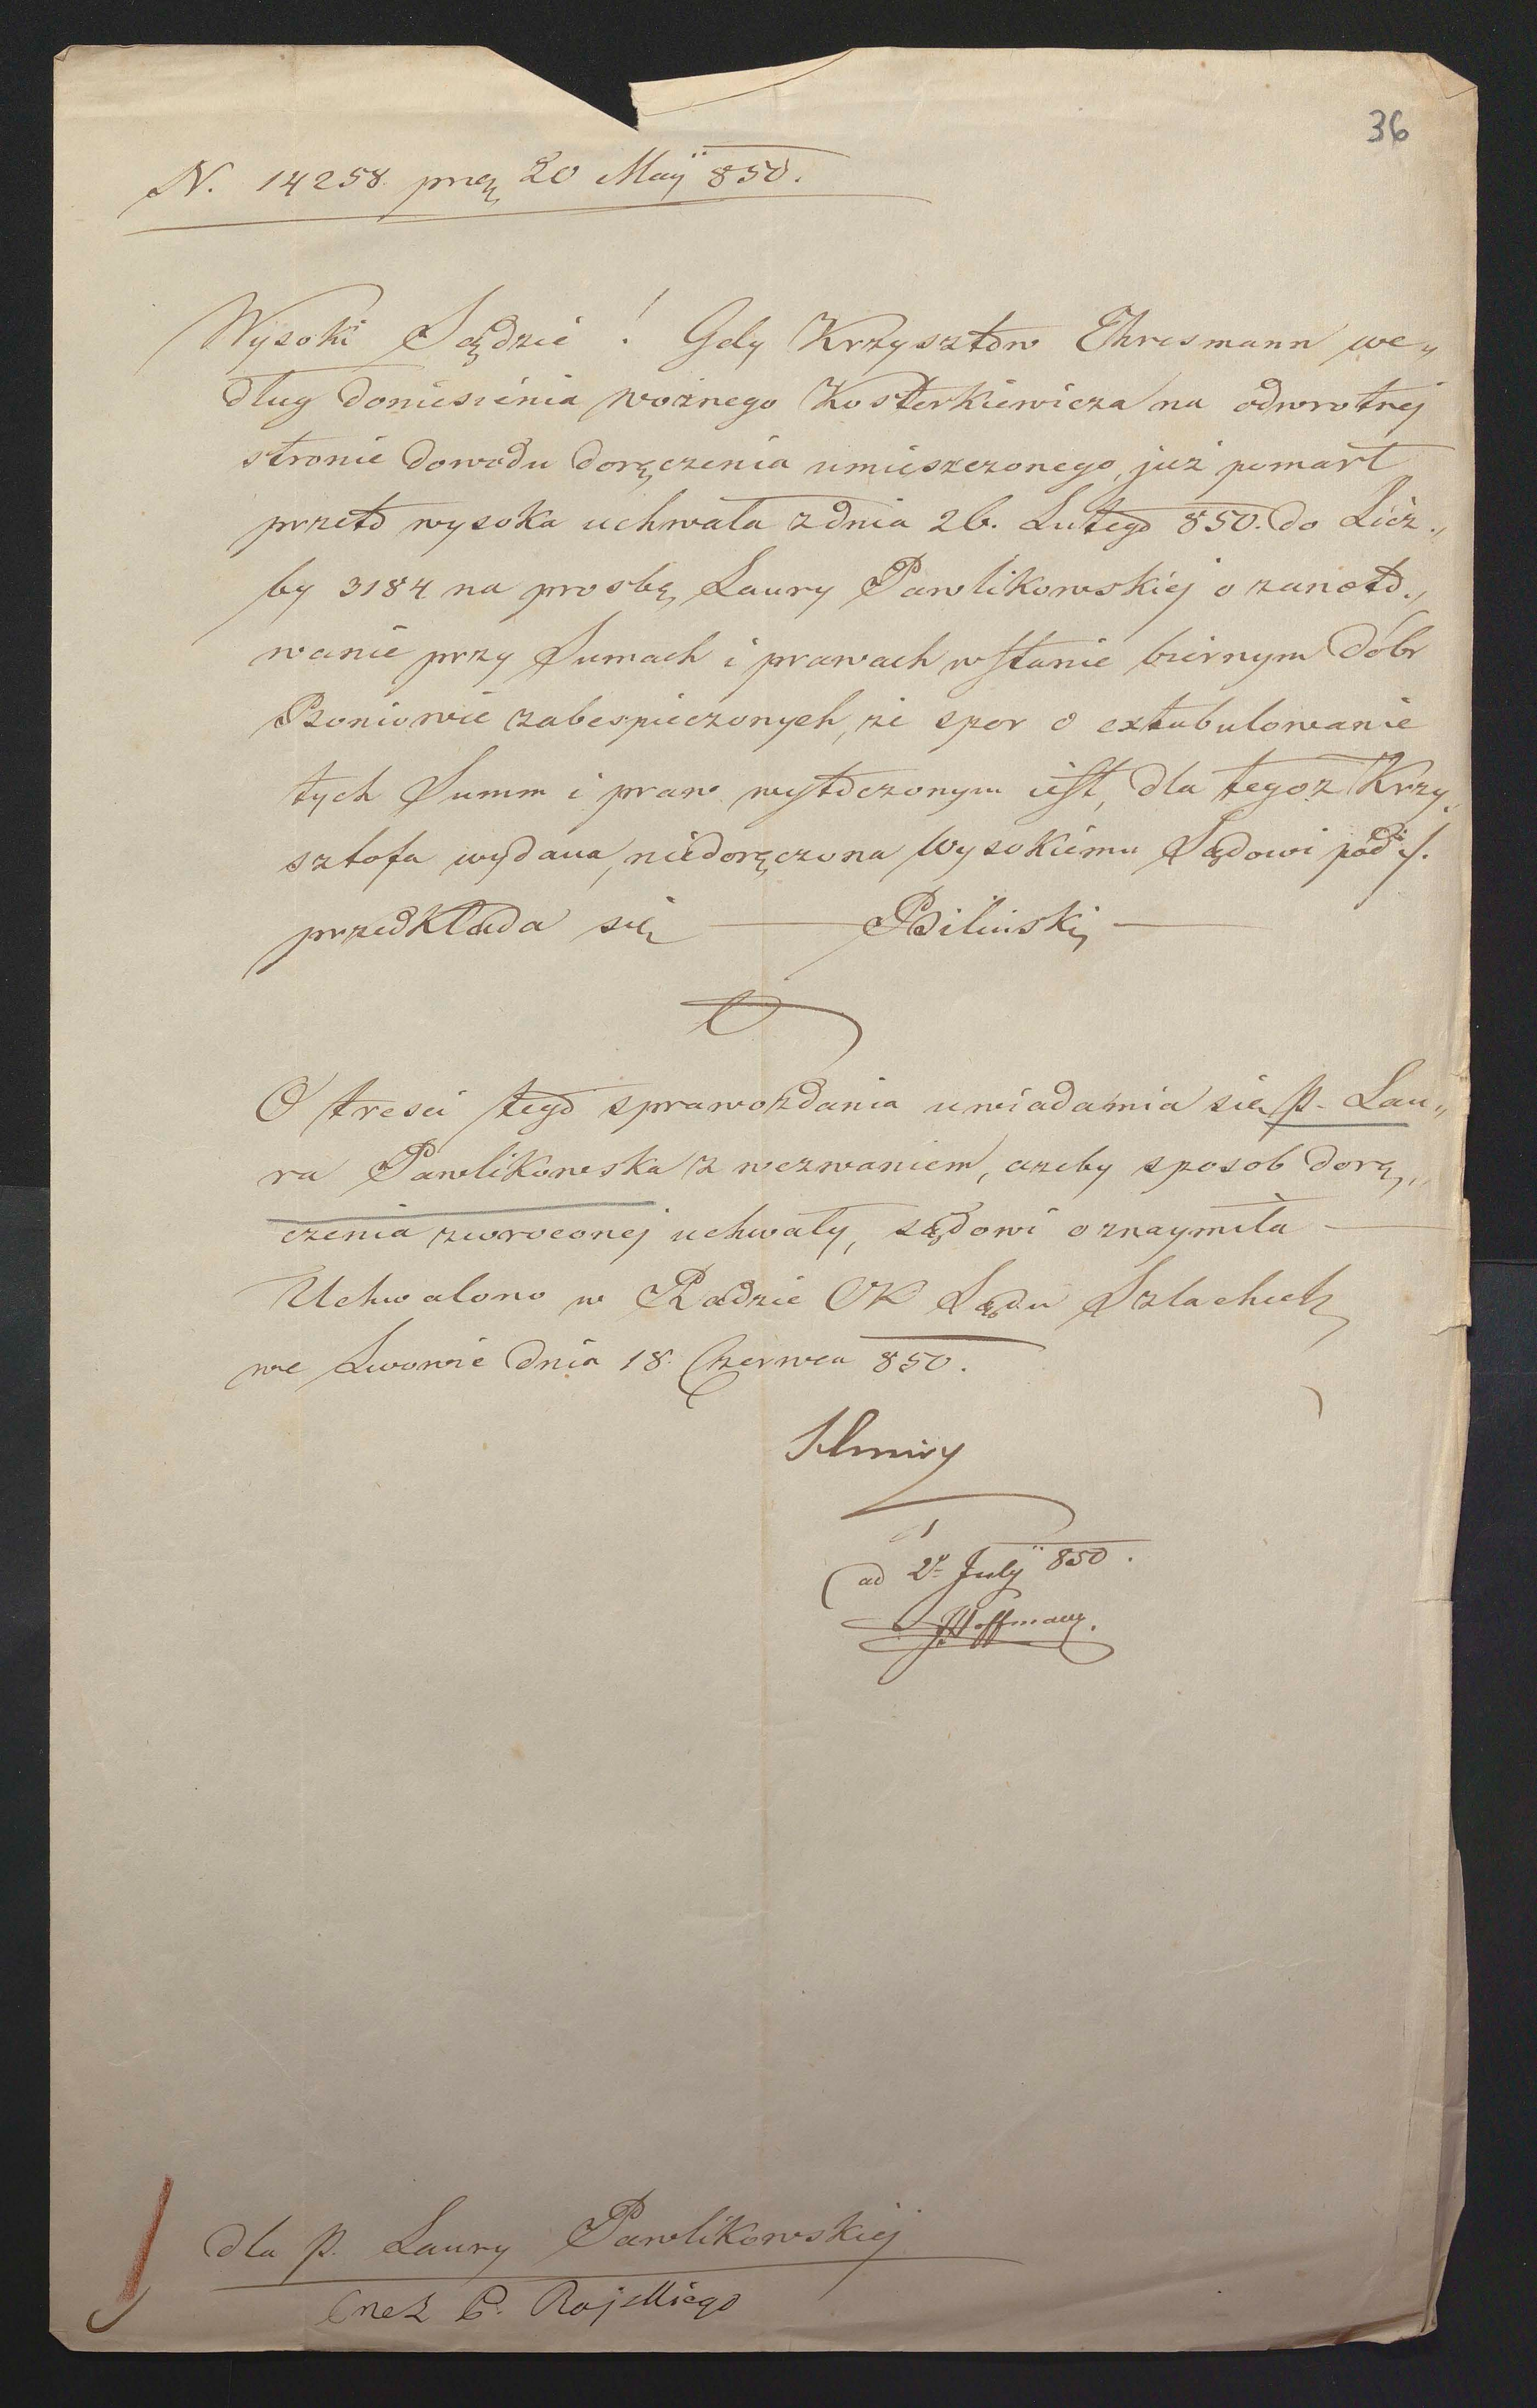 36
N. 14258 prez 20 Maij 850.
Wysoki Sądzie! Gdy Krzysztow Ehresmann we„
dług doniesienia woźnego Kosterkiewicza na odwrotnej
stronie dowodu doręczenia umieszczonego, już pomarł
przeto wysoka uchwała z dnia 26. Lutego 850. do Licz„
by 3184 na prosbę Laury Pawlikowskiej o zanoto„
wanie przy Sumach i prawach w stanie biernym dóbr
Boniowie zabespieczonych, że spor o extabulowanie
tych Summ i praw wytoczonym iest, dla tegoż Krzy„
sztofa wydana, niedoręczona Wysokiemu Sądowi pod ./.
przedkłada się — Biliński —
O tresci tego sprawozdania uwiadamia się P. Lau„
ra Pawlikowska z wezwaniem, azeby sposob dorę„
czenia zwroconej uchwały, sądowi oznaymiła —
Uchwalono w Radzie CK Sądu Szlacheck
we Lwowie dnia 18. Czerwca 850.
ad 2 Julij 850.
Hoffmann.
dla P. Laury Pawlikowskiej
P. Rajskiego